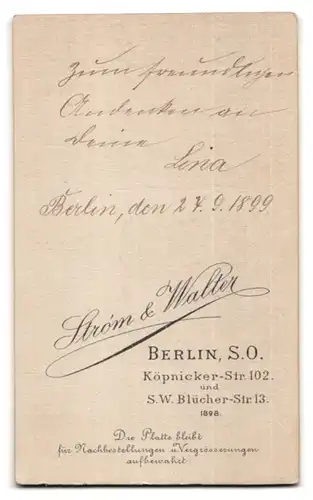 Zum freundlichen
Andenken an
Deine
Lina
Berlin, den 27. 9. 1899
Ström & Walter
BERLIN, S.O.
Köpnicker-Str. 102.
und
S.W. Blücher-Str. 13.
1898.
Die Platte bleibt
für Nachbestellungen u. Vergrösserungen
aufbewahrt.